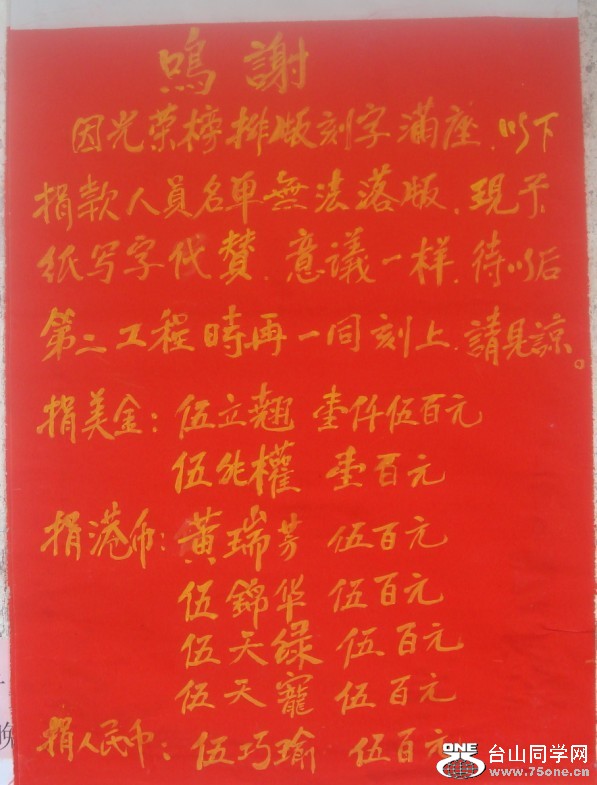 鳴謝
因光荣榜排版刻字滿座、以下
捐款人員名单無法落版、現予
纸写字代赞、意議一样、待以后
第二工程時再一同刻上、請見諒。
捐美金：伍立翹 壹仟伍百元
伍能權 壹百元
捐港币：黄瑞芳 伍百元
伍錦华 伍百元
伍天绿 伍百元
伍天寵 伍百元
捐人民币：伍巧瑜 伍百元
ONE 台山同学网
www.75one.cn
晚